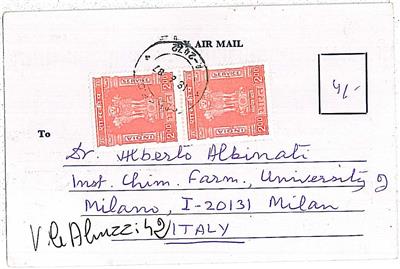 BY AIR MAIL
4/-
SERVICE
2.00
INDIA
SERVICE
2.00
भारत
INDIA
To
Dr. Alberto Albinati
Inst. Chim. Farm., University of
Milano, I-20131 Milan
ITALY
V.le Abruzzi 42